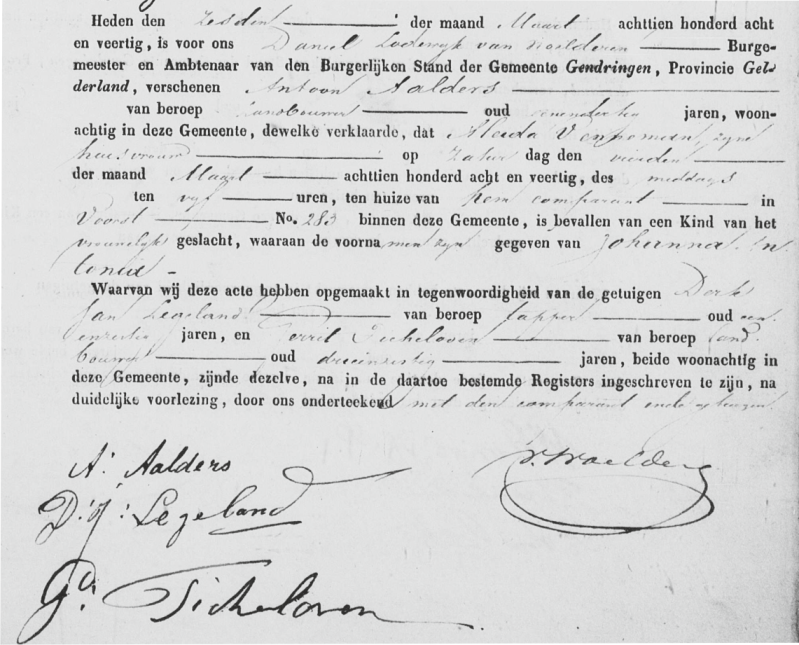 Heden den zesden der maand Maart achttien honderd acht
en veertig, is voor ons Daniel Lodewyk van Woelderen Burge-
meester en Ambtenaar van den Burgerlijken Stand der Gemeente Gendringen, Provincie Gel-
derland, verschenen Antoon Aalders
van beroep landbouwer oud jaren, woon-
achtig in deze Gemeente, dewelke verklaarde, dat Aleida Venneman, zyne
huisvrouw op Zatur dag den vierden
der maand Maart achttien honderd acht en veertig, des middags
ten vyf uren, ten huize van hem comparant in
Voorst No. 283 binnen deze Gemeente, is bevallen van een Kind van het
vrouwelyk geslacht, waaraan de voorna men zyn gegeven van Johanna An
tonia
Waarvan wij deze acte hebben opgemaakt in tegenwoordigheid van de getuigen Derk
Jan Legeland van beroep tapper oud een
enzestig jaren, en Gerrit Ticheloven van beroep land
bouwer oud drieenzestig jaren, beide woonachtig in
deze Gemeente, zijnde dezelve, na in de daartoe bestemde Registers ingeschreven te zijn, na
duidelijke voorlezing, door ons onderteekend met den comparant ende getuigen.
A: Aalders
v. Woelderen
D: J: Legeland
Gd: Ticheloven